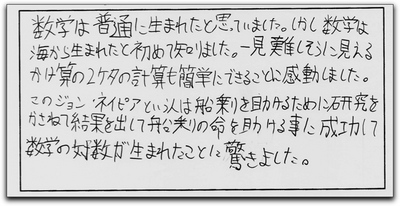 数学は普通に生まれたと思っていました。しかし数学は
海から生まれたと初めて知りました。一見難しそうに見える
かけ算の2ケタの計算も簡単にできることに感動しました。
このジョン・ネイピアという人は船乗りを助けるために研究を
かさねて結果を出して船乗りの命を助ける事に成功して
数学の対数が生まれたことに驚きました。